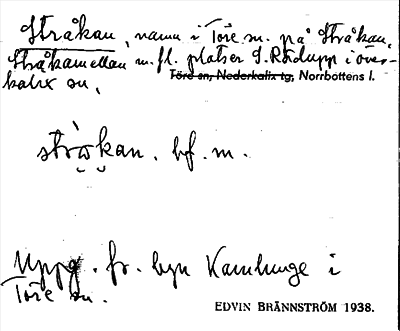 Stråkan, namn i Töre sn. på Stråkan,
Stråkamellan m.fl. platser S. Rödupp i över-
Töre sn, Nederkalix tg, Norrbottens l.
kalix sn.
strå̀kan. bf. m.
Uppg. fr. byn Kamlunge i
Töre sn.
EDVIN BRÄNNSTRÖM 1938.